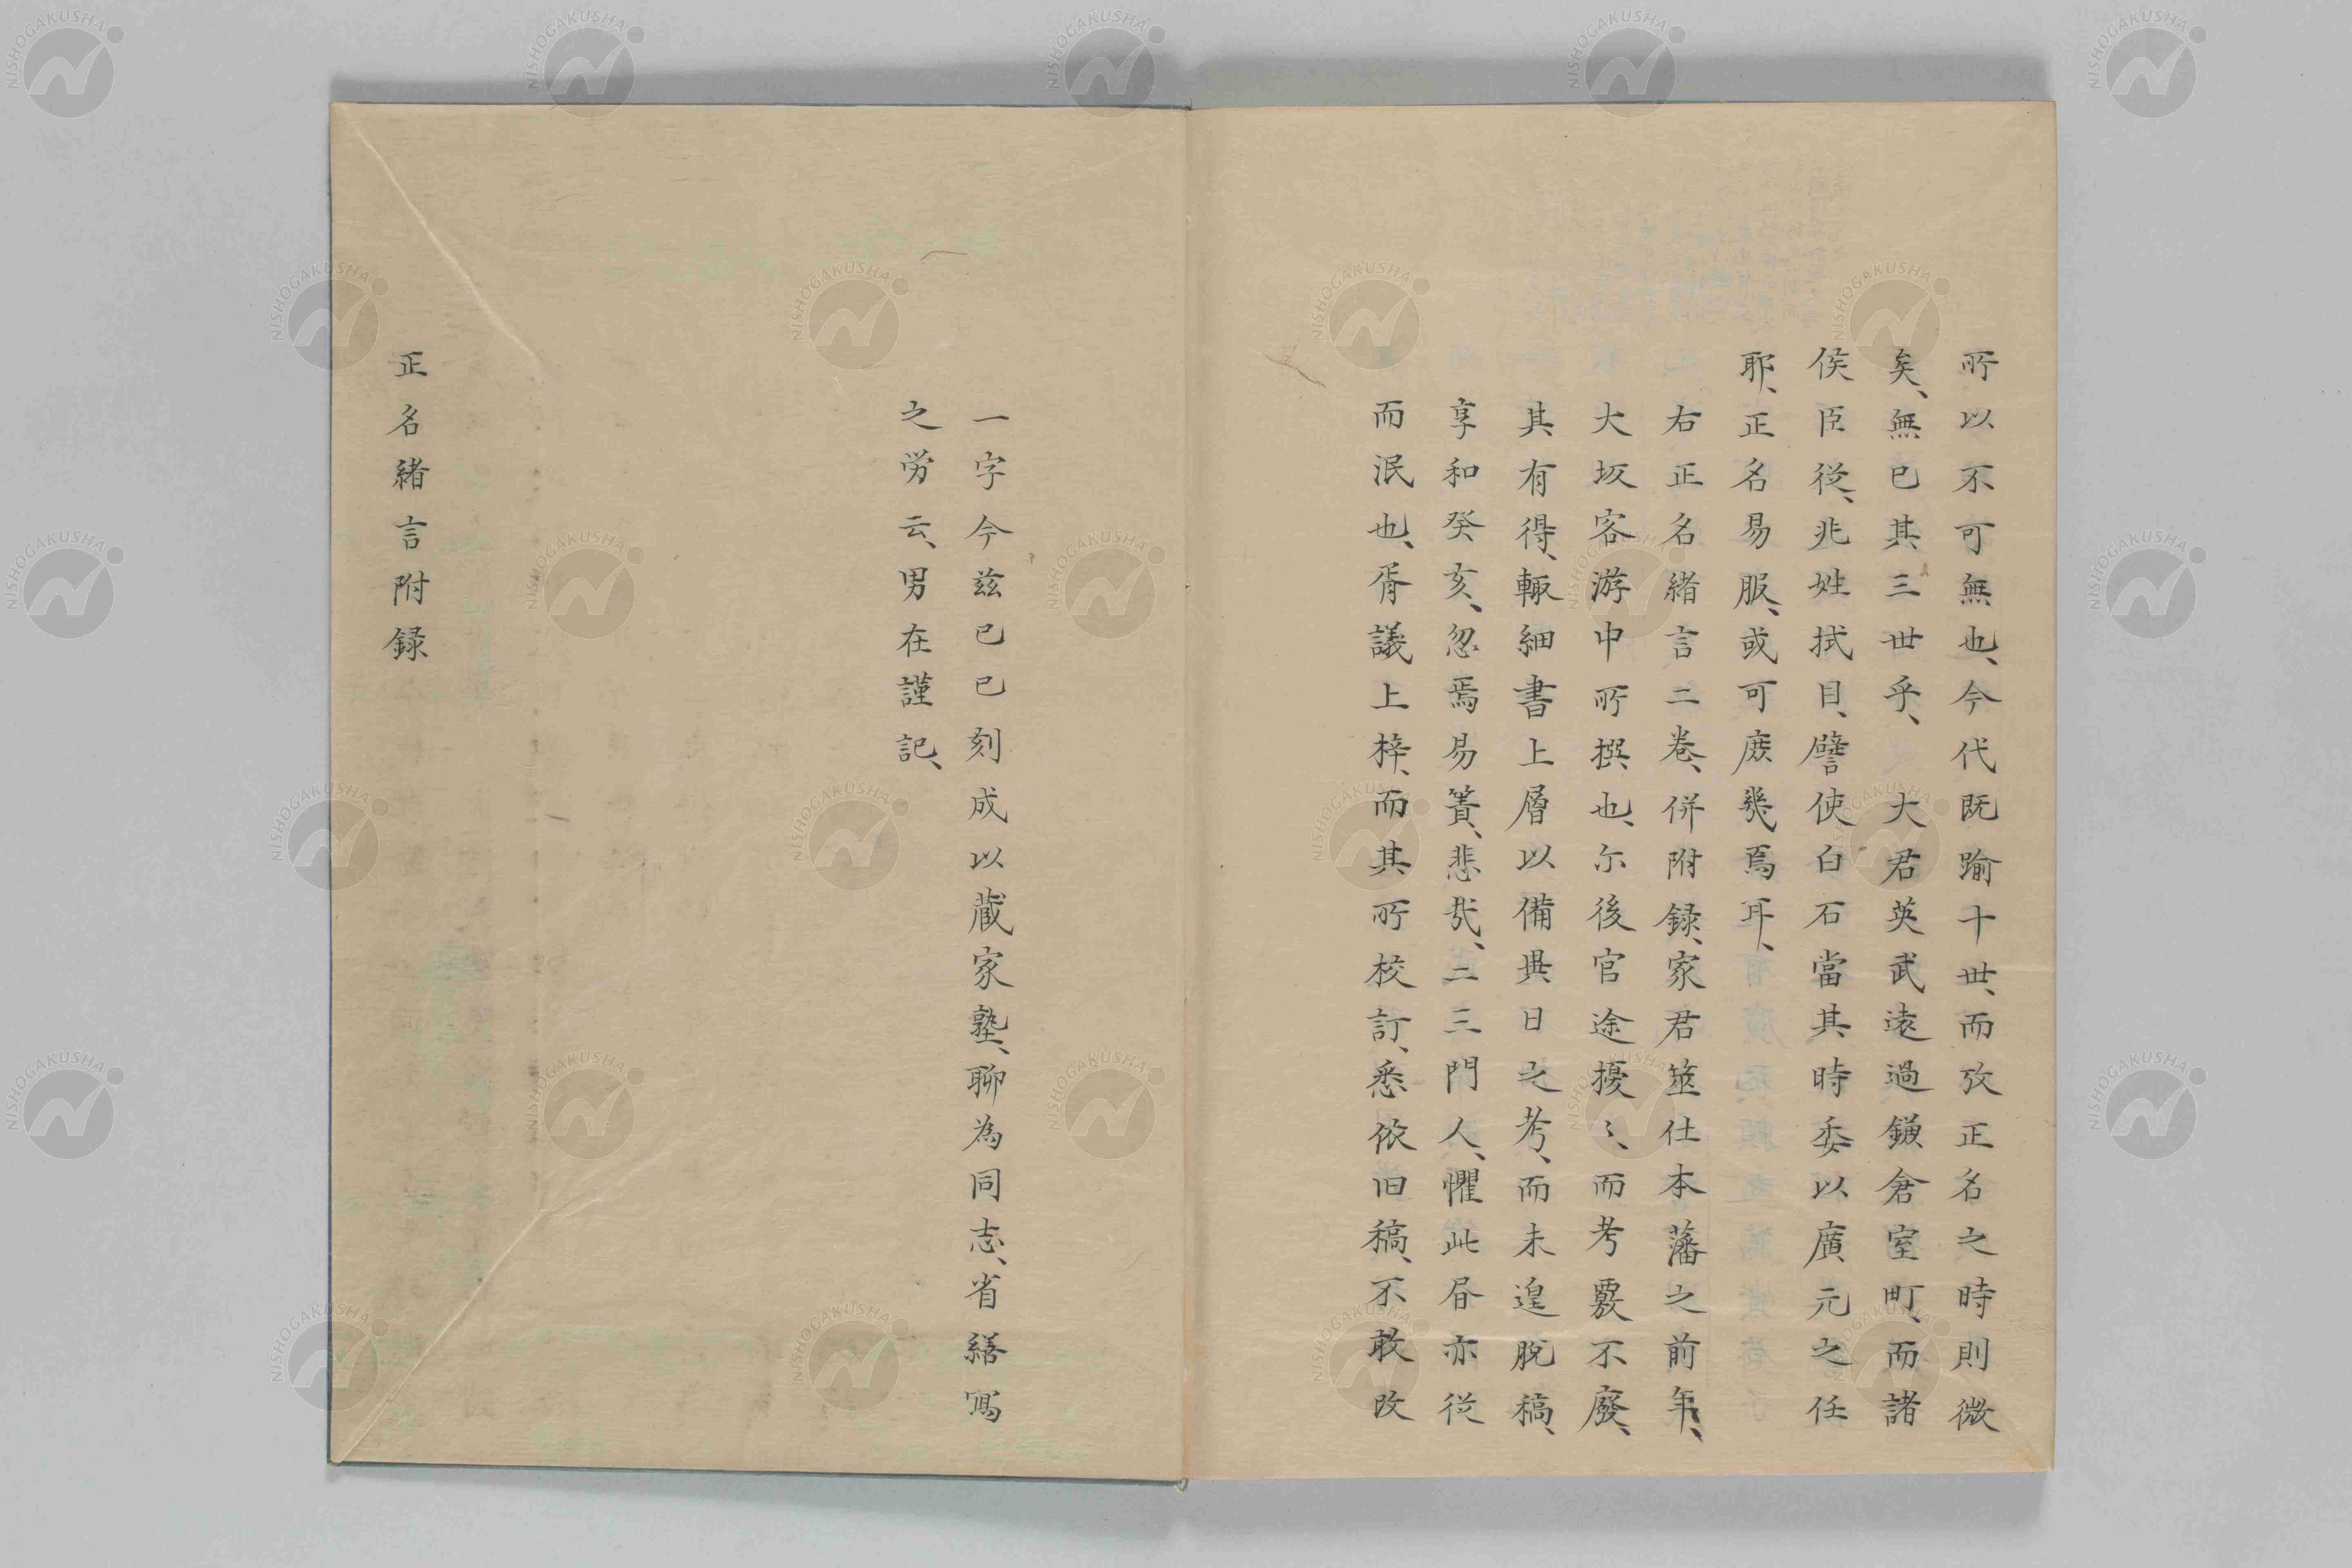 所以不可無也、今代既踰十世、而攷正名之時則微
矣、無已其三世乎、大君英武遠過鎌倉室町、而諸
侯臣従、兆姓拭目、譬使白石當其時委以廣元之任
耶、正名易服、或可庻幾焉耳、
右正名緒言二卷、併附録、家君筮仕本藩之前年、
大坂客游中所撰也、尓後官途擾〻、而考覈不廢、
其有得、輙細書上層以備異日之考、而未遑脱稿、
享和癸亥、忽焉易簀、悲哉、二三門人、懼此昬亦従
而泯也、胥議上梓、而其所校訂、悉依旧稿、不敢改
一字今兹已巳刻成以蔵家塾、聊為同志、省繕寫
之労云、男在謹記、
正名緒言附録
NISHOGAKUSHA